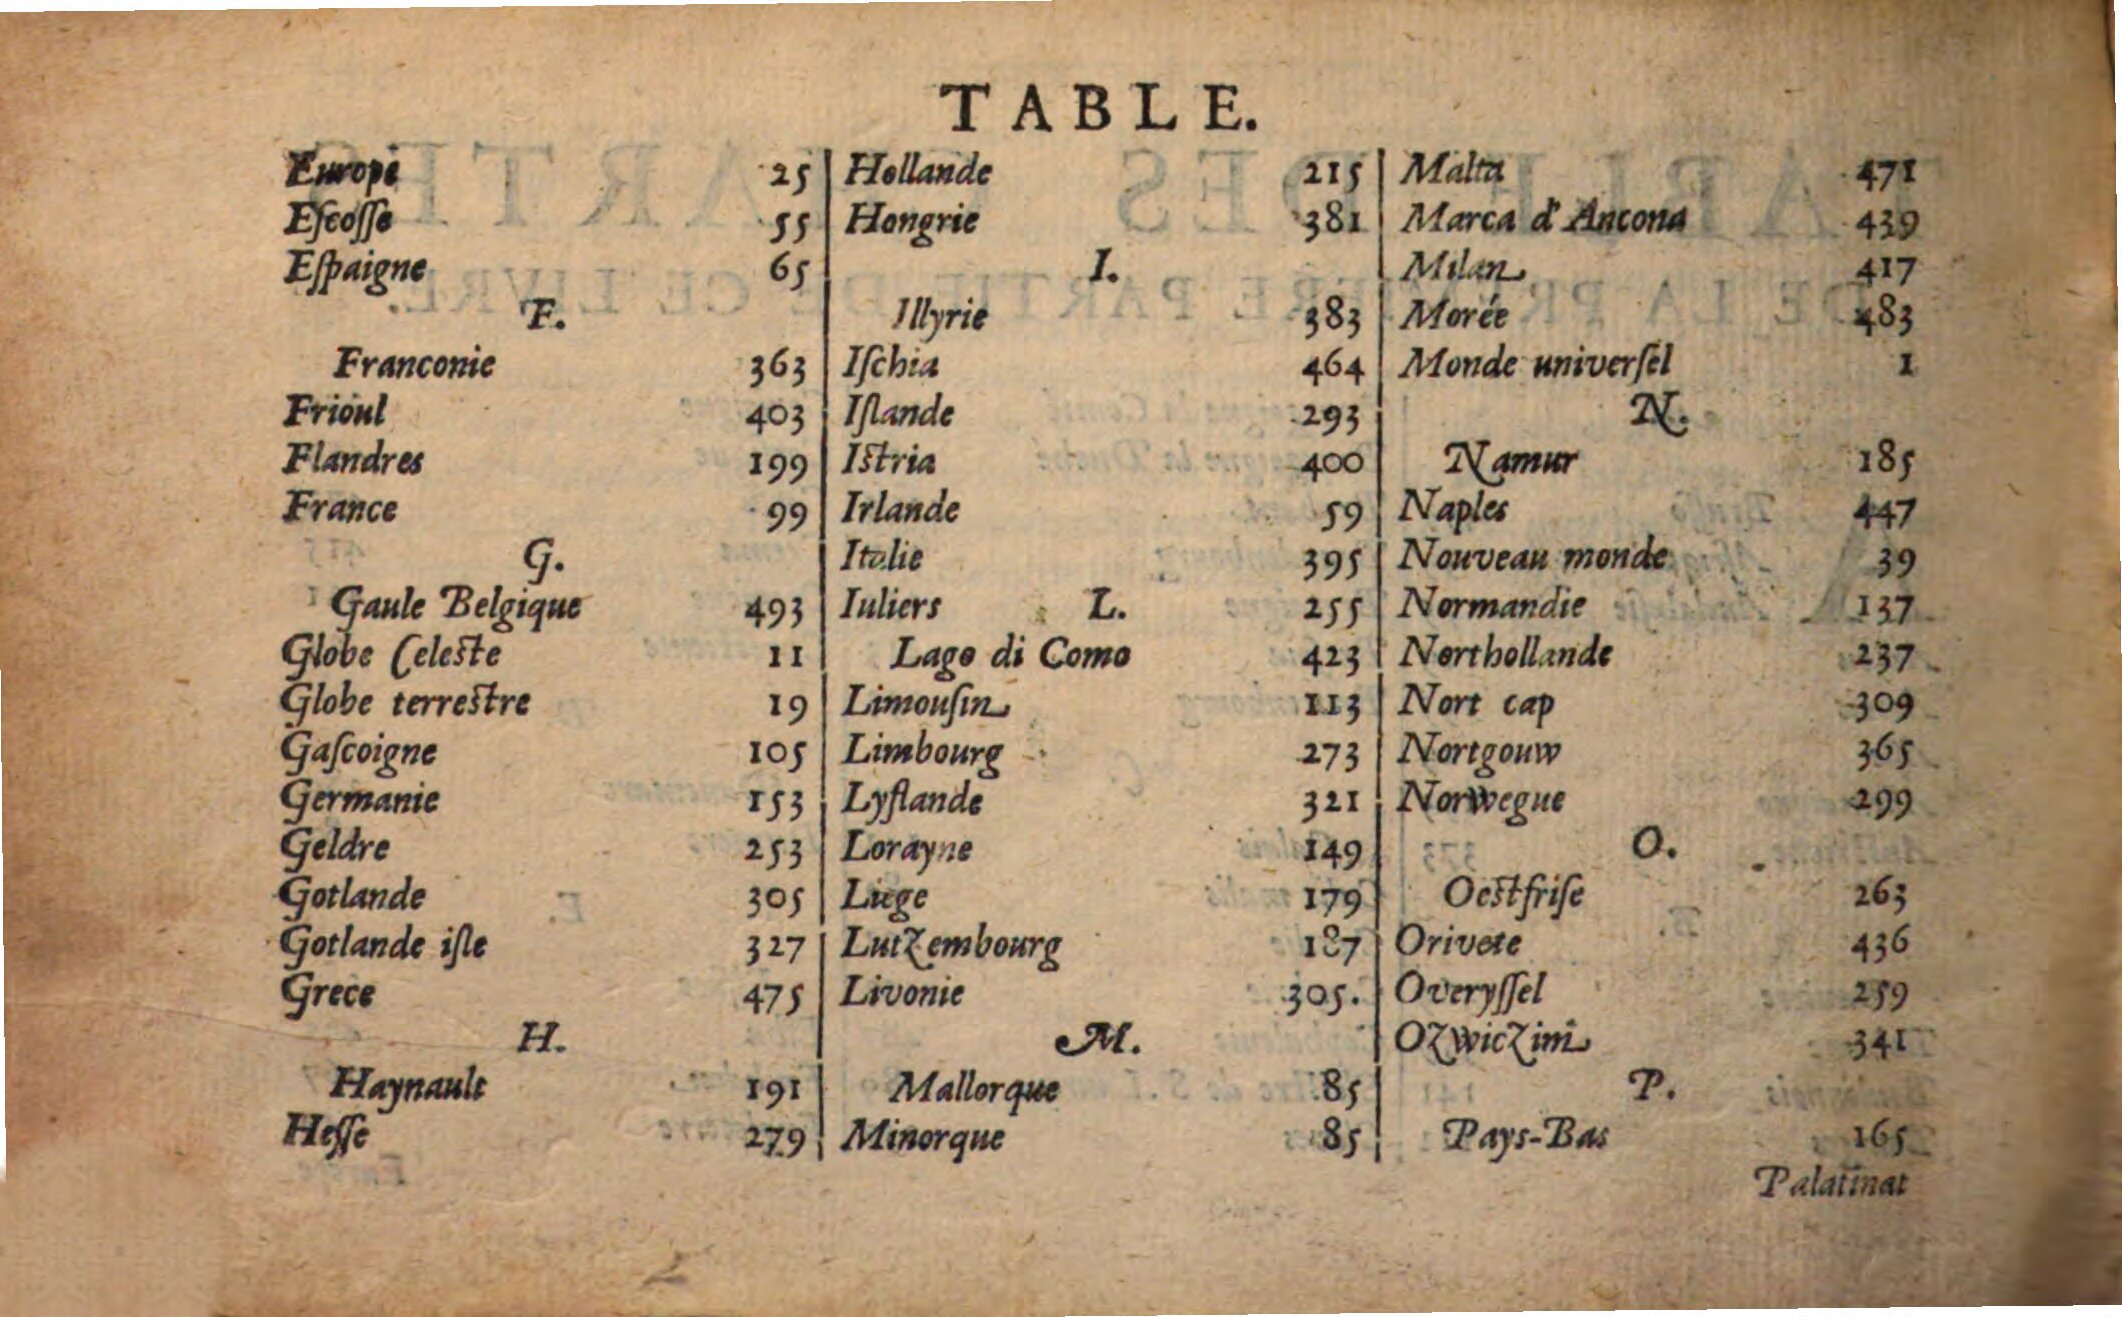 TABLE.
Europe 25
Eſcoſſe 55
Eſpaigne 65
F.
Franconie 363
Frioul 403
Flandres 199
France 99
G.
Gaule Belgique 493
Globe Celeſte 11
Globe terreſtre 19
Gaſcoigne 105
Germanie 153
Geldre 253
Gotlande 305
Gotlande iſle 327
Grece 475
H.
Haynault 191
Heſſe 279
Hollande 215
Hongrie 381
I.
Illyrie 383
Iſchia 464
Iſlande 293
Iſtria 400
Irlande 59
Italie 395
Iuliers 255
L.
Lago di Como 423
Limouſin 113
Limbourg 273
Lyflande 321
Lorayne 149
Liege 179
Lutzembourg 187
Livonie 305.
M.
Mallorque 85
Minorque 85
Malta 471
Marca d'Ancona 439
Milan 417
Morée 483
Monde univerſel 1
N.
Namur 185
Naples 447
Nouveau monde 39
Normandie 137
Northollande 237
Nort cap 309
Nortgouw 365
Norwegue 299
O.
Oeſtfriſe 263
Orivete 436
Overyſſel 259
Ozwiczim 341
P.
Pays-Bas 165
Palatinat